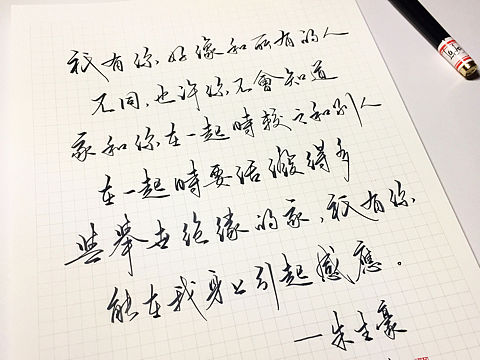 祇有你好像和所有的人
不同,也许你不會知道
我和你在一起時較之和别人
在一起時要活潑得多
與舉世絕緣的我,祇有你
能在我身上引起感應。
—朱生豪